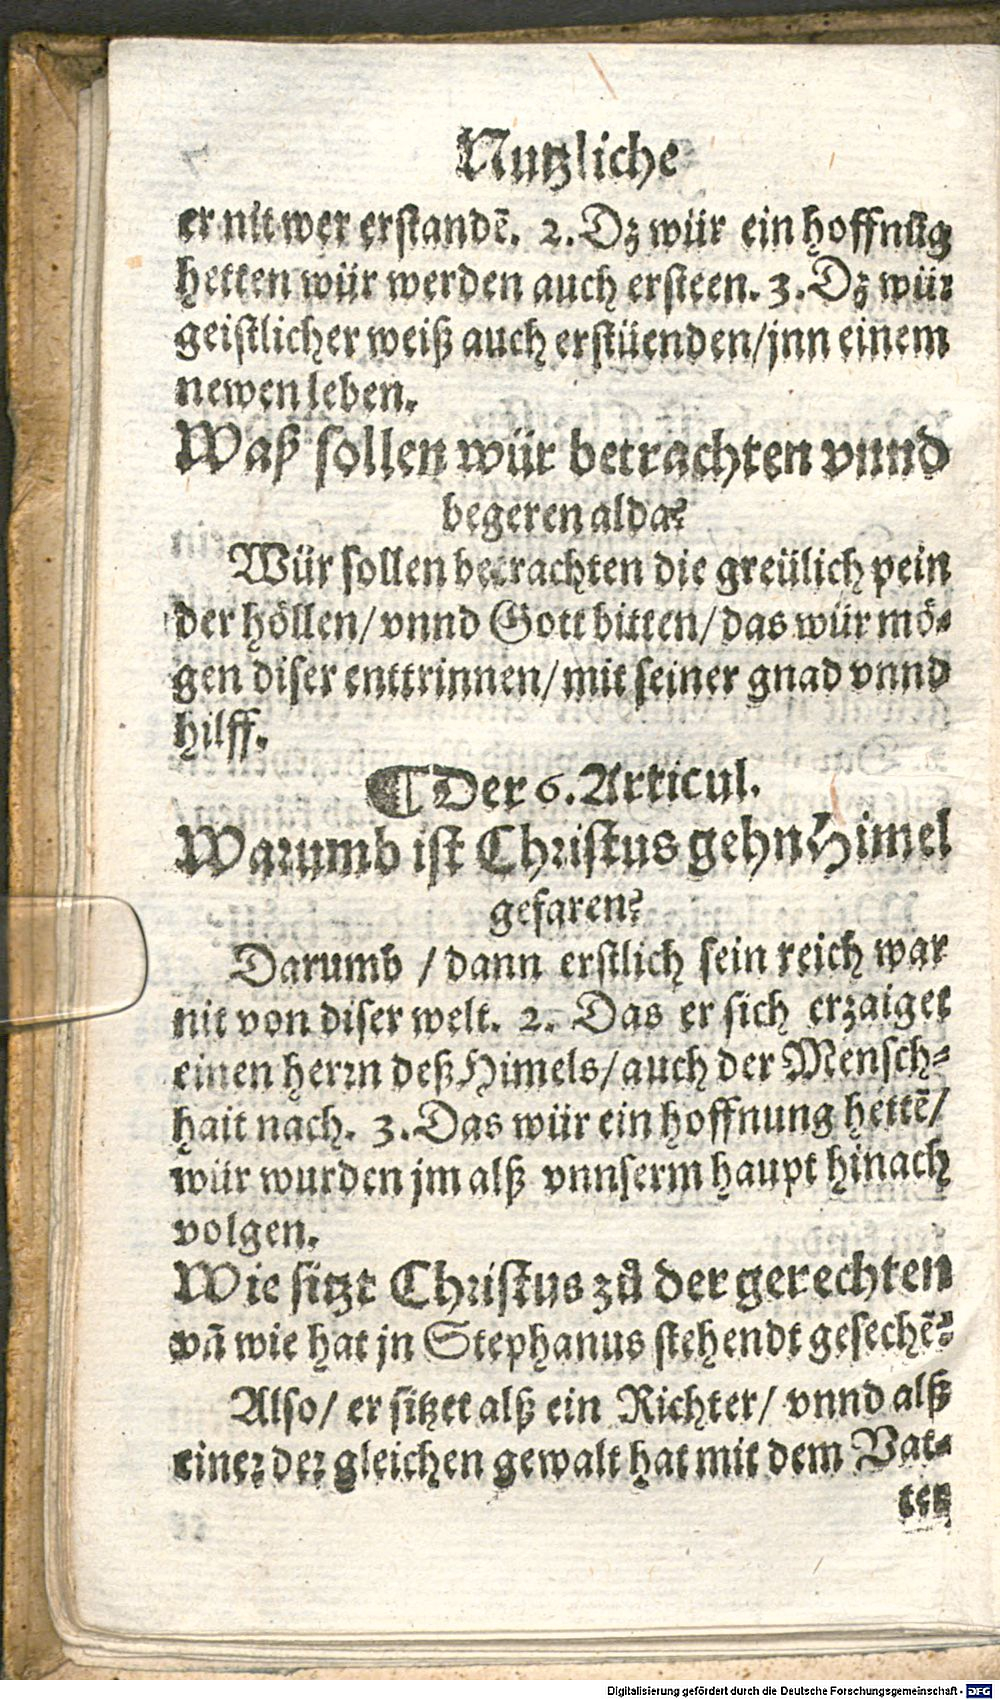 Nutzliche
er nit wer erstandē. 2. Dz wür ein hoffnūg
hetten wür werden auch ersteen. 3. Dz wür
geistlicher weiß auch erstüenden/jnn einem
newen leben.
Waß sollen wür betrachten vnnd
begeren alda?
Wür sollen betrachten die greülich pein
der höllen/vnnd Gott bitten/das wür mö⸗
gen diser enttrinnen/mit seiner gnad vnnd
hilff.
¶ Der 6. Articul.
Warumb ist Christus gehn Himel
gefaren?
Darumb / dann erstlich sein reich war
nit von diser welt. 2. Das er sich erzaiget
einen herrn deß Himels/auch der Mensch⸗
hait nach. 3. Das wür ein hoffnung hettē/
wür wurden jm alß vnnserm haupt hinach
volgen.
Wie sitzt Christus zů der gerechten
vñ wie hat jn Stephanus stehendt gesechē?
Also/ er sitzet alß ein Richter/ vnnd alß
einer der gleichen gewalt hat mit dem Vat⸗
ter
Digitalisierung gefördert durch die Deutsche Forschungsgemeinschaft - DFG